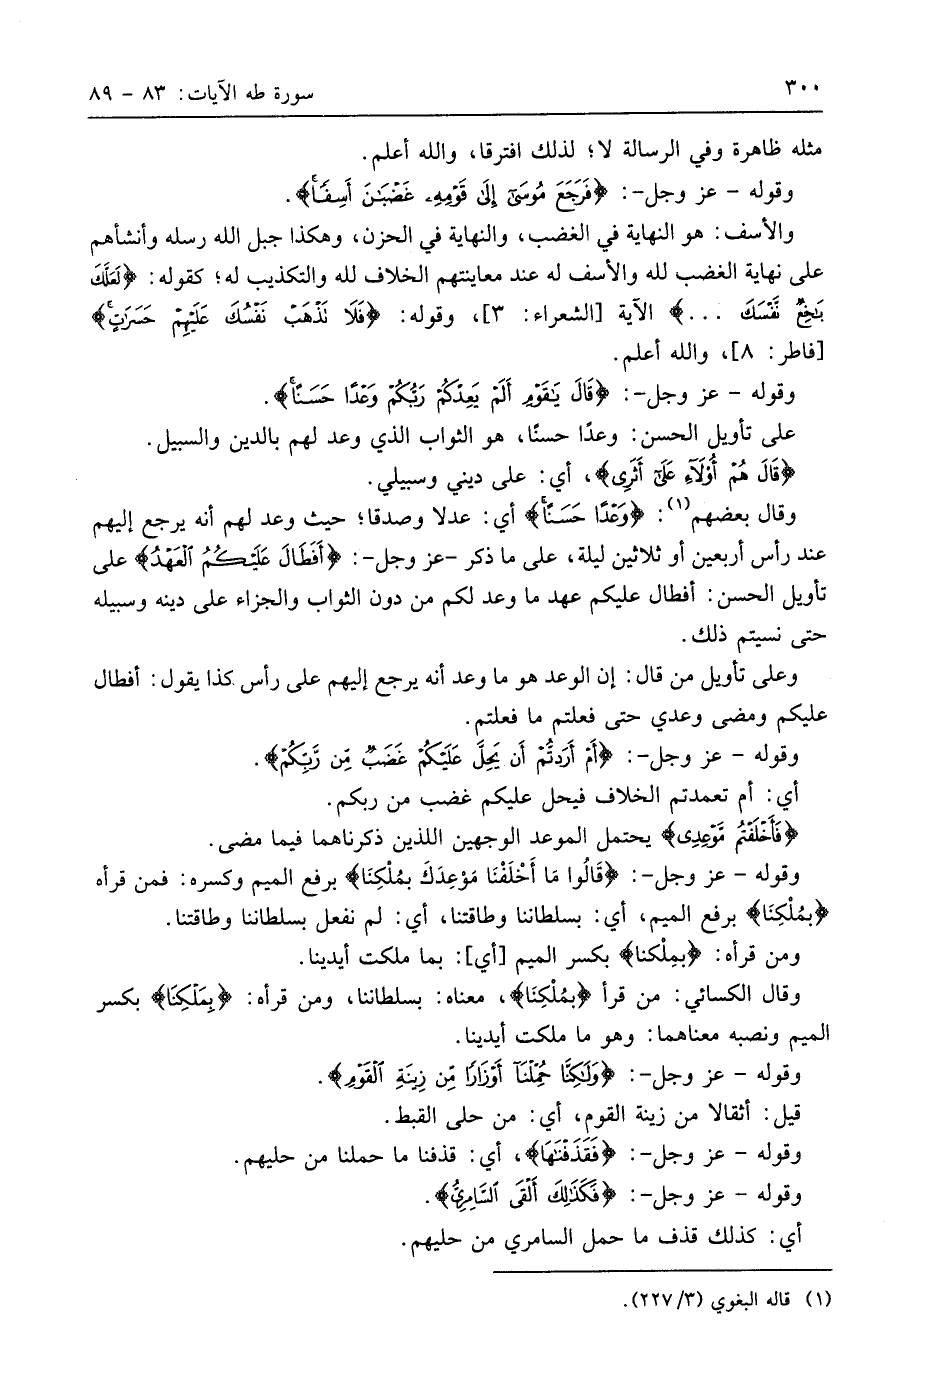 ٣٠٠
سورة طه الآيات: ٨٣ - ٨٩
مثله ظاهرة وفي الرسالة لا؛ لذلك افترقا، والله أعلم.
وقوله - عز وجل-: ﴿فَرَجَعَ مُوسَىٰٓ إِلَىٰ قَوْمِهِۦ غَضْبَٰنَ أَسِفًاۚ﴾.
والأسف: هو النهاية في الغضب، والنهاية في الحزن، وهكذا جبل الله رسله وأنشأهم
على نهاية الغضب لله والأسف له عند معاينتهم الخلاف لله والتكذيب له؛ كقوله: ﴿لَعَلَّكَ
بَٰخِعٌ نَّفْسَكَ ...﴾ الآية [الشعراء: ٣]، وقوله: ﴿فَلَا تَذْهَبْ نَفْسُكَ عَلَيْهِمْ حَسَرَٰتٍۚ﴾
[فاطر: ٨]، والله أعلم.
وقوله - عز وجل-: ﴿قَالَ يَٰقَوْمِ أَلَمْ يَعِدْكُمْ رَبُّكُمْ وَعْدًا حَسَنًاۚ﴾.
على تأويل الحسن: وعدًا حسنًا، هو الثواب الذي وعد لهم بالدين والسبيل.
﴿قَالَ هُمْ أُوْلَآءِ عَلَىٰٓ أَثَرِى﴾، أي: على ديني وسبيلي.
وقال بعضهم(١): ﴿وَعْدًا حَسَنًاۚ﴾ أي: عدلا وصدقا؛ حيث وعد لهم أنه يرجع إليهم
عند رأس أربعين أو ثلاثين ليلة، على ما ذكر -عز وجل-: ﴿أَفَطَالَ عَلَيْكُمُ ٱلْعَهْدُ﴾ على
تأويل الحسن: أفطال عليكم عهد ما وعد لكم من دون الثواب والجزاء على دينه وسبيله
حتى نسيتم ذلك.
وعلى تأويل من قال: إن الوعد هو ما وعد أنه يرجع إليهم على رأس كذا يقول: أفطال
عليكم ومضى وعدي حتى فعلتم ما فعلتم.
وقوله - عز وجل-: ﴿أَمْ أَرَدتُّمْ أَن يَحِلَّ عَلَيْكُمْ غَضَبٌ مِّن رَّبِّكُمْ﴾.
أي: أم تعمدتم الخلاف فيحل عليكم غضب من ربكم.
﴿فَأَخْلَفْتُم مَّوْعِدِى﴾ يحتمل الموعد الوجهين اللذين ذكرناهما فيما مضى.
وقوله - عز وجل-: ﴿قَالُوا مَا أَخْلَفْنَا مَوْعِدَكَ بِمُلْكِنَا﴾ برفع الميم وكسره: فمن قرأه
﴿بِمُلْكِنَا﴾ برفع الميم، أي: بسلطاننا وطاقتنا، أي: لم نفعل بسلطاننا وطاقتنا.
ومن قرأه: ﴿بِمِلْكنا﴾ بكسر الميم [أي]: بما ملكت أيدينا.
وقال الكسائي: من قرأ ﴿بِمُلْكِنَا﴾، معناه: بسلطاننا، ومن قرأه: ﴿بِمَلْكِنَا﴾ بكسر
الميم ونصبه معناهما: وهو ما ملكت أيدينا.
وقوله - عز وجل-: ﴿وَلَٰكِنَّا حُمِّلْنَآ أَوْزَارًا مِّن زِينَةِ ٱلْقَوْمِ﴾.
قيل: أثقالا من زينة القوم، أي: من حلى القبط.
وقوله - عز وجل-: ﴿فَقَذَفْنَٰهَا﴾، أي: قذفنا ما حملنا من حليهم.
وقوله - عز وجل-: ﴿فَكَذَٰلِكَ أَلْقَى ٱلسَّامِرِىُّ﴾.
أي: كذلك قذف ما حمل السامري من حليهم.
(١) قاله البغوي (٢٢٧/٣).